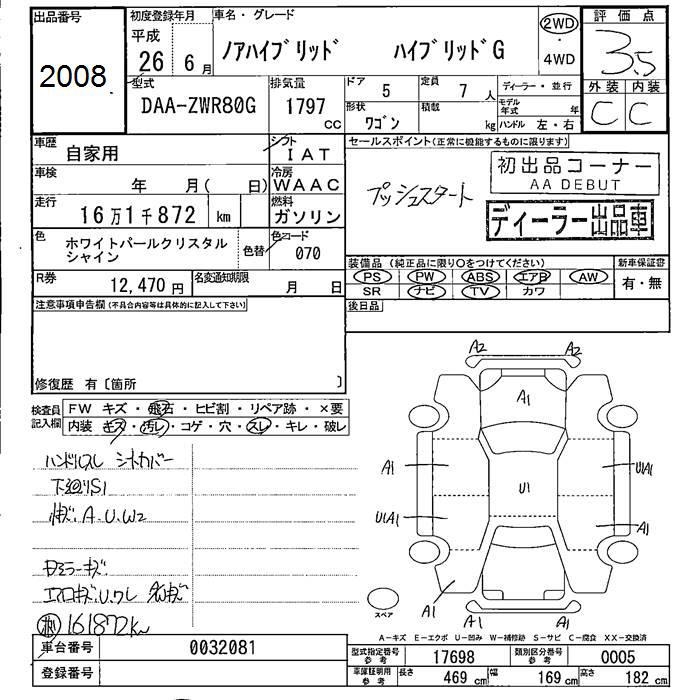 出品番号
2008
初度登録年月
平成
26年 6月
車名・グレード
ノアハイブリッド ハイブリッドG
2WD
4WD
評価点
3.5
外装 内装
C C
型式
DAA-ZWR80G
排気量
1797
cc
ドア
5
定員
7人
形状
ワゴン
積載
kg
ディーラー・並行
モデル年式 年
ハンドル 左・右
車歴
自家用
シフト
IAT
車検
年 月( 日)
冷房
WAAC
走行
16万1千872 km
燃料
ガソリン
色
ホワイトパールクリスタル
シャイン
色替
色コード
070
R券
12,470円
名変通知期限
月 日
セールスポイント(正常に機能するものに限ります)
プッシュスタート
初出品コーナー
AA DEBUT
ディーラー出品車
装備品(純正品に限り○をつけてください)
新車保証書
PS PW ABS エアB AW
SR ナビ TV カワ
有・無
後日品
注意事項申告欄(不具合内容等は具体的に記入して下さい)
修復歴 有〔箇所 〕
検査員
記入欄
FW キズ・飛石・ヒビ割・リペア跡・×要
内装 キズ・汚レ・コゲ・穴・スレ・キレ・破レ
ハンドルスレ シートカバー
下廻りS1
A.U.W2
161872km
A2 A2
A1
A1
U1A1
U1
U1A1
A1
A1
A1
A1
スペア
A-キズ E-エクボ U-凹み W-補修跡 S-サビ C-腐食 XX-交換済
車台番号
0032081
登録番号
型式指定番号
参考
17698
類別区分番号
参考
0005
車庫証明用
参考
長さ
469cm
幅
169cm
高さ
182cm